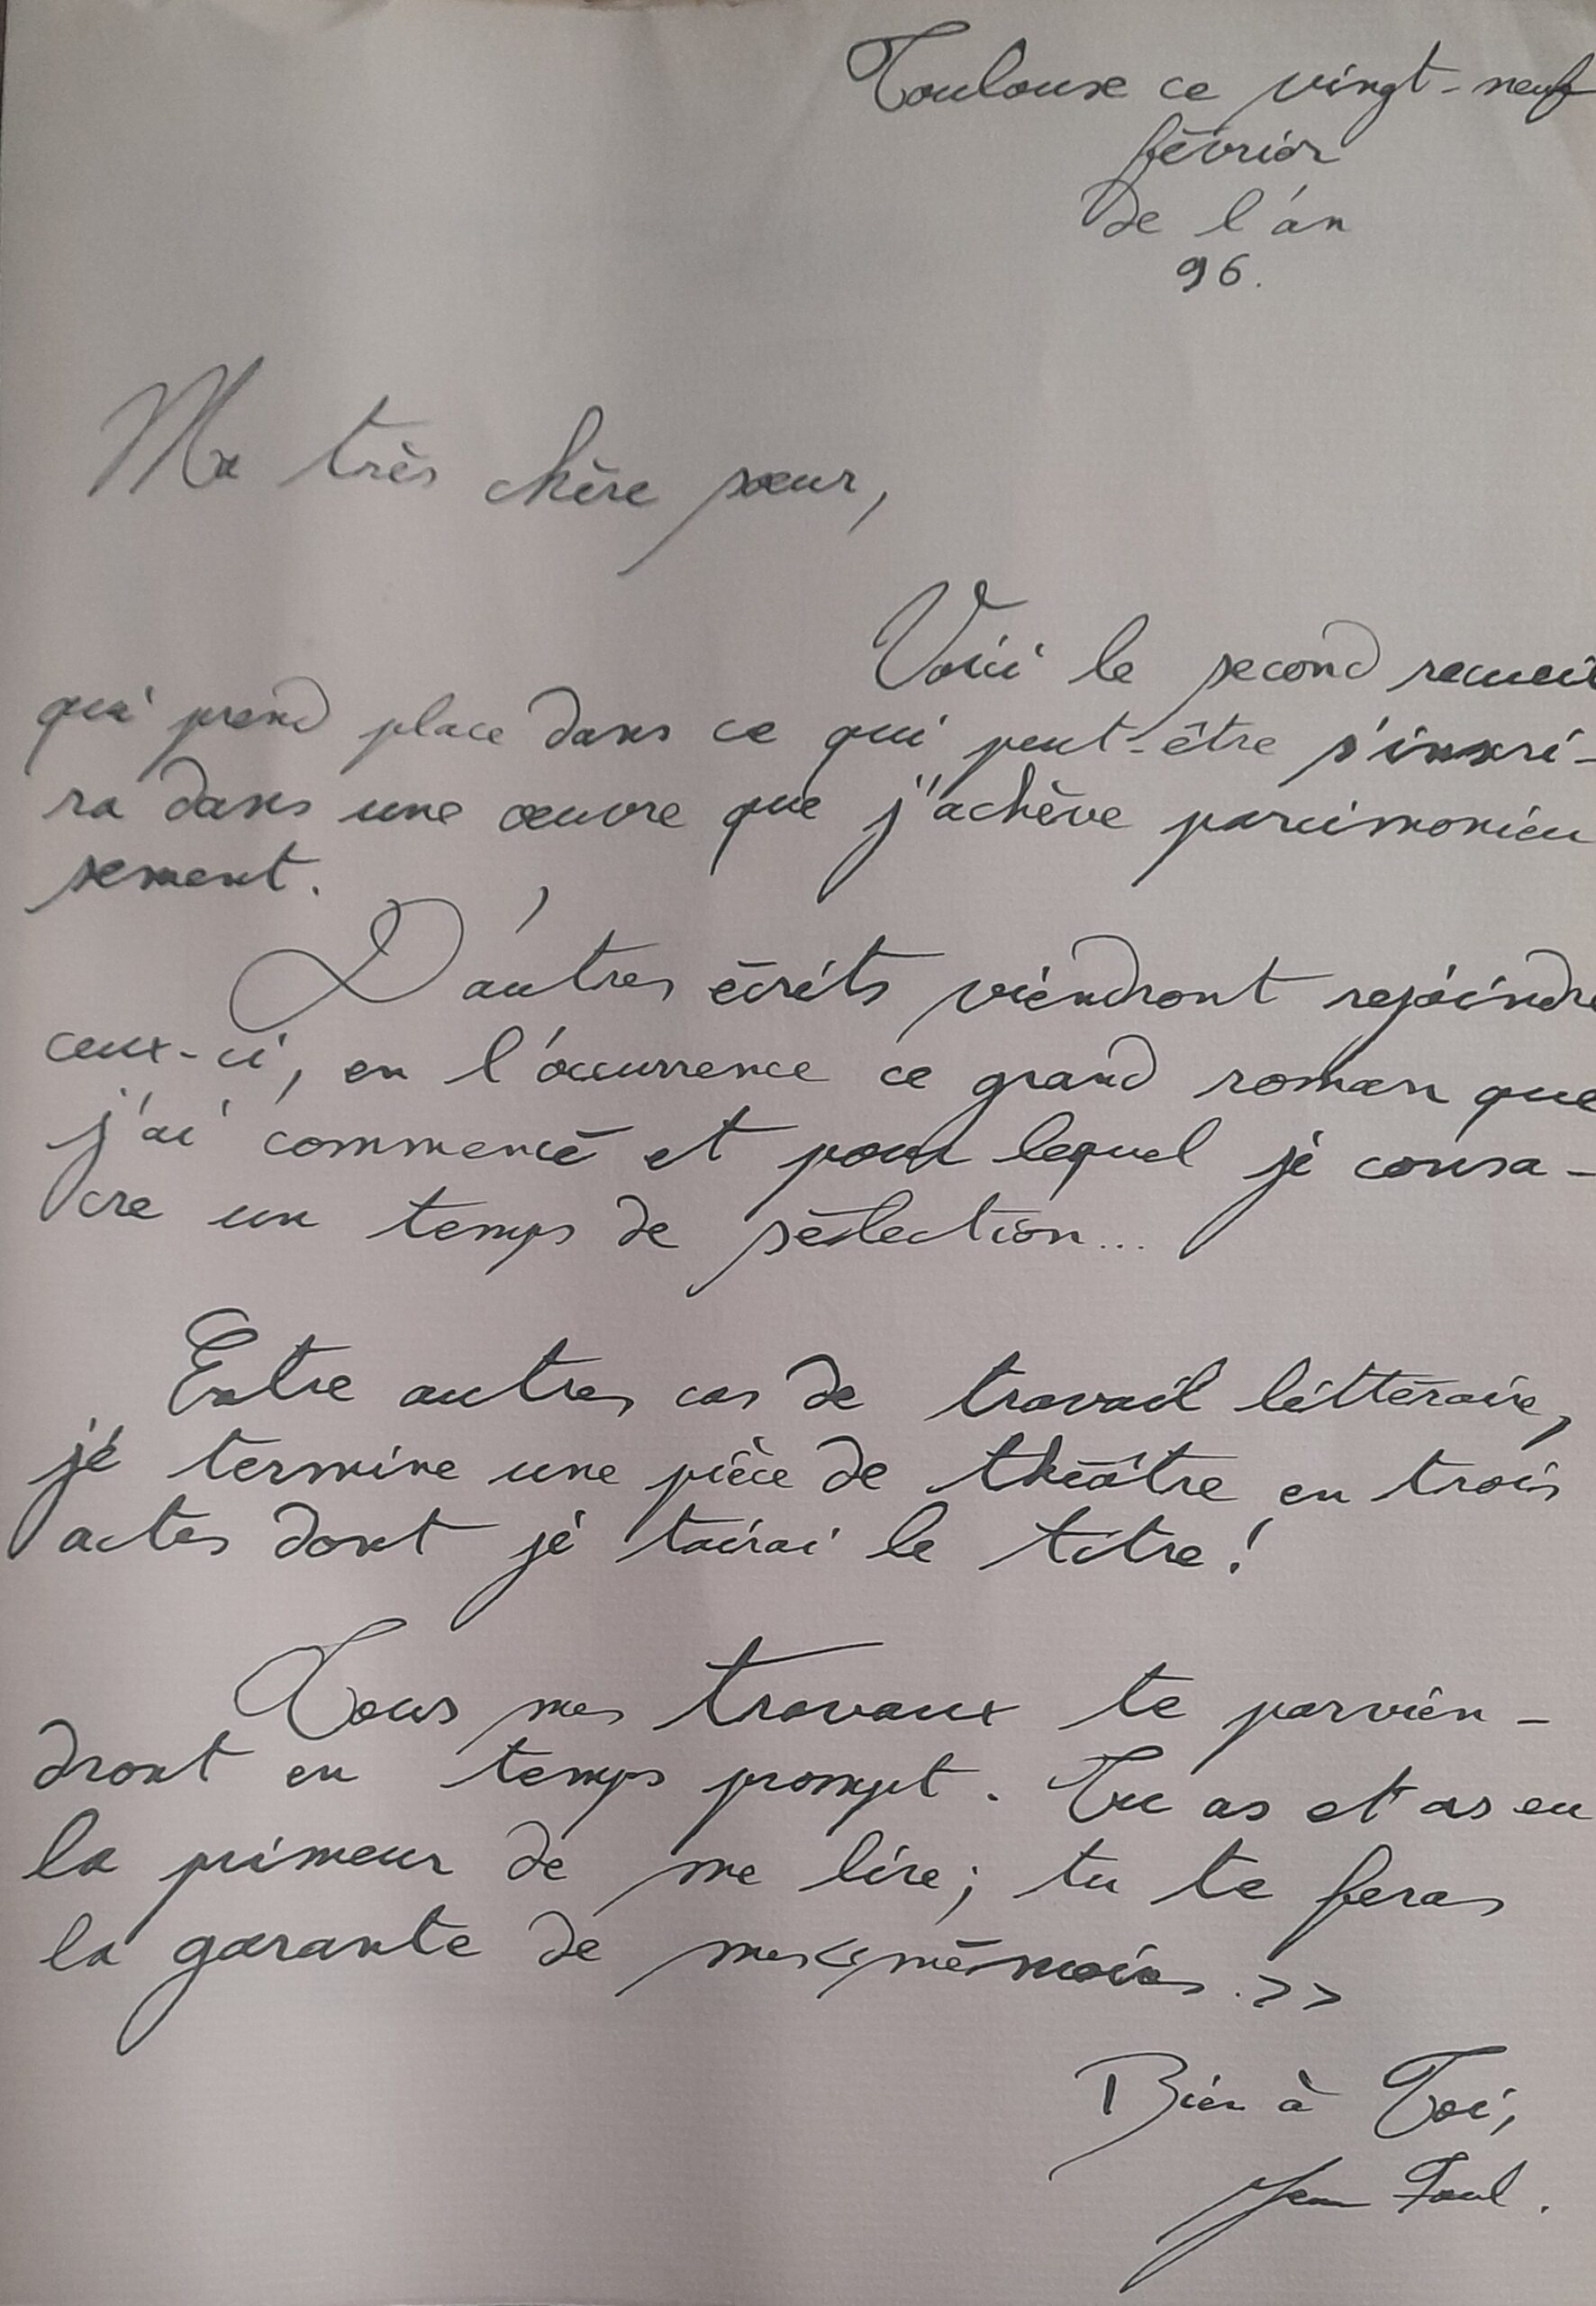 Toulouse ce vingt-neuf
février
de l'an
96.
Ma très chère sœur,
Voici le second recueil
qui prend place dans ce qui peut-être s'inscri-
ra dans une œuvre que j'achève parcimonieu
sement.
D'autres écrits viendront rejoindre
ceux-ci, en l'occurrence ce grand roman que
j'ai commencé et pour lequel je consa-
cre un temps de sélection...
Entre autres cas de travail littéraire,
je termine une pièce de théâtre en trois
actes dont je tairai le titre !
Tous mes travaux te parvien-
dront en temps prompt. Tu as et as eu
la primeur de me lire; tu te feras
la garante de mes << mémoires. >>
Bien à Toi,
Jean Paul.